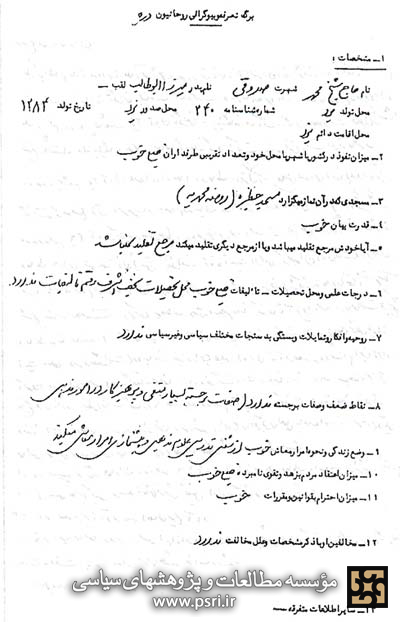 برگ تعرفه و بیوگرافی روحانیون
۱ـ مشخصات :
نام حاج شیخ محمد شهرت صدوقی نام پدر میرزا ابوطالب لقب ـ
محل تولد یزد شماره شناسنامه ۲۴۰ محل صدور یزد تاریخ تولد ۱۲۸۴
محل اقامت دائم یزد
۲ـ میزان نفوذ در کشور یا شهر یا محل خود و تعداد تقریبی طرفداران خیلی خوب
۳ـ مسجدی که در آن نماز میگزارد مسجد حظیره (روضه محمدیه)
۴ـ قدرت بیان خوب
۵ـ آیا خودش مرجع تقلید میباشد و یا از مرجع دیگری تقلید میکند مرجع تقلید نمیباشد
۶ـ درجات علمی و محل تحصیلات ـ تالیفات خیلی خوب محل تحصیلات نجف اشرف و قم تالیفات ندارد
۷ـ روحیه و افکار و تمایلات و بستگی به دستجات مختلف سیاسی و غیر سیاسی ندارد
۸ـ نقاط ضعف و صفات برجسته ندارد (صفات برجسته بسیار متقی و پرهیزکار در امور مذهبی
۹ـ وضع زندگی و نحوه امرار معاش خوب از تدریس علوم مذهبی و پیشنمازی امرار معاش میکند
۱۰ـ میزان اعتقاد مردم بزهد و تقوی نامبرده خیلی خوب
۱۱ـ میزان احترام بقوانین و مقررات خوب
۱۲ـ مخالفین او با ذکر مشخصات و علل مخالفت ندارد
۱۳ـ سایر اطلاعات متفرقه ـ
مؤسسه مطالعات و پژوهشهای سیاسی
www.psri.ir